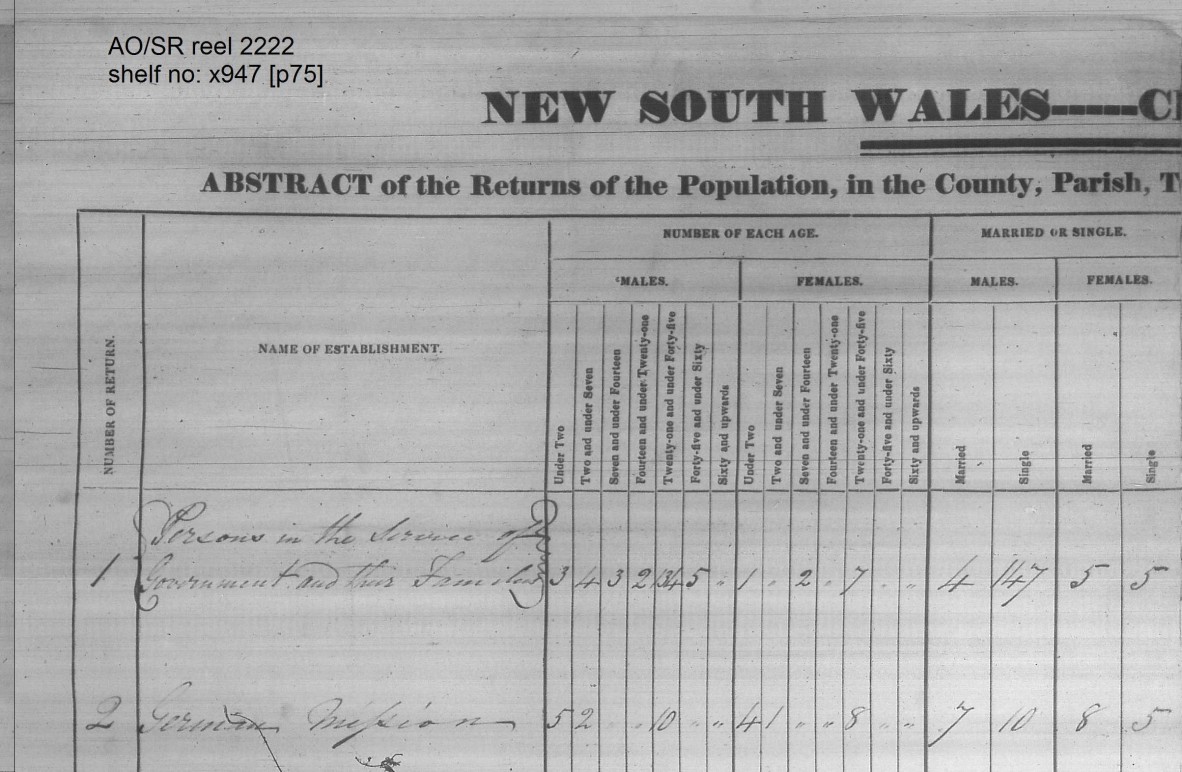 AO/SR reel 2222
shelf no: x947 [p75]
NEW SOUTH WALES-----CE
ABSTRACT of the Returns of the Population, in the County, Parish, T
NUMBER OF RETURN.
NAME OF ESTABLISHMENT.
NUMBER OF EACH AGE.
MARRIED OR SINGLE.
MALES.
FEMALES.
MALES.
FEMALES.
Under Two
Two and under Seven
Seven and under Fourteen
Fourteen and under Twenty-one
Twenty-one and under Forty-five
Forty-five and under Sixty
Sixty and upwards
Under Two
Two and under Seven
Seven and under Fourteen
Fourteen and under Twenty-one
Twenty-one and under Forty-five
Forty-five and under Sixty
Sixty and upwards
Married
Single
Married
Single
Persons in the Service of
1 Government and their Families 3 4 3 2 134 5 " 1 " 2 " 7 " " 4 147 5 5
2 German Mission 5 2 " " 10 " " 4 1 " " 8 " " 7 10 8 5